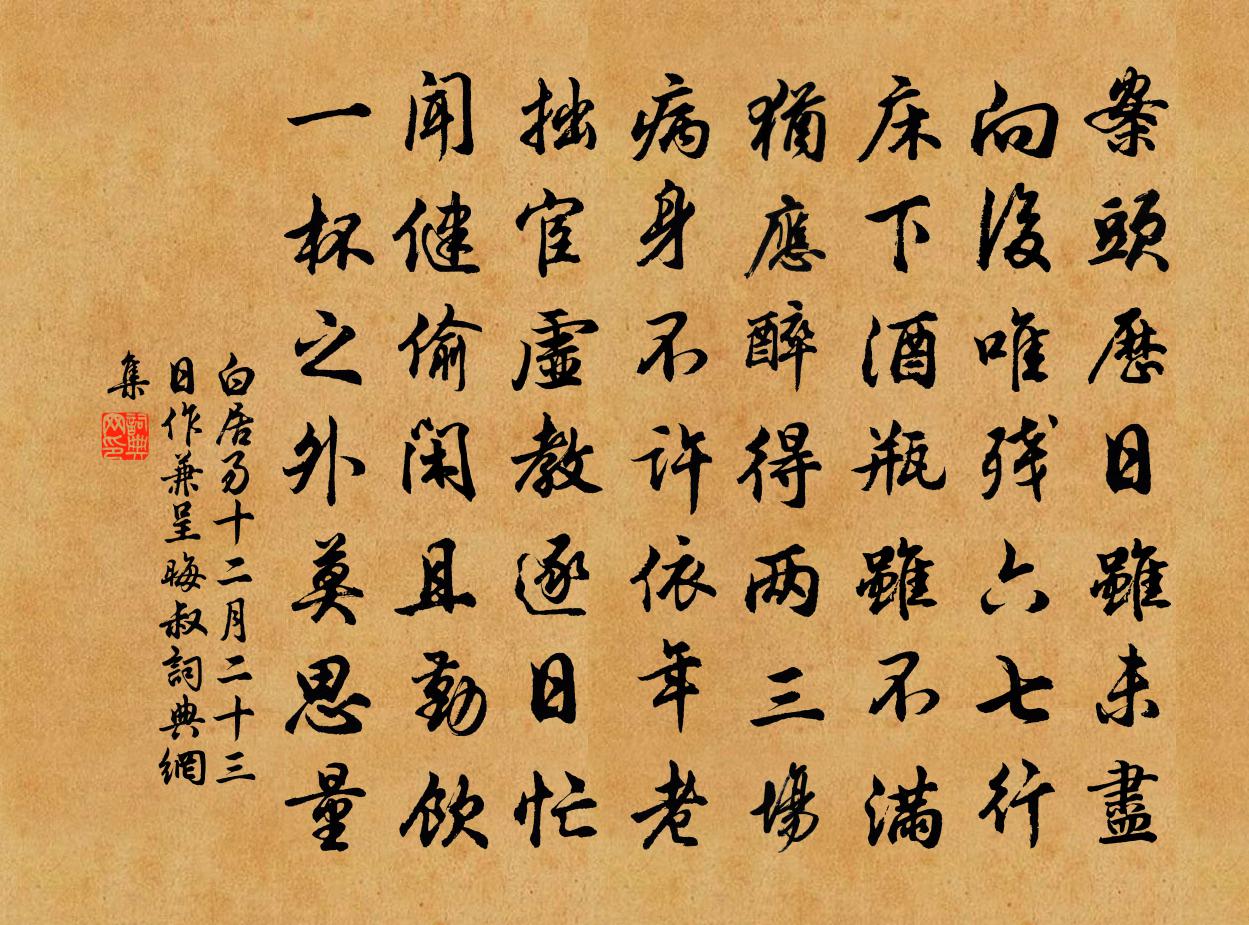 案頭歷日雖未盡
向後唯残六七行
床下酒瓶雖不滿
猶應醉得两三場
病身不許依年老
拙宦虛教逐日忙
闻健偷闲且勤飲
一杯之外莫思量
白居易十二月二十三
日作兼呈晦叔詞典網
集
詞典网印